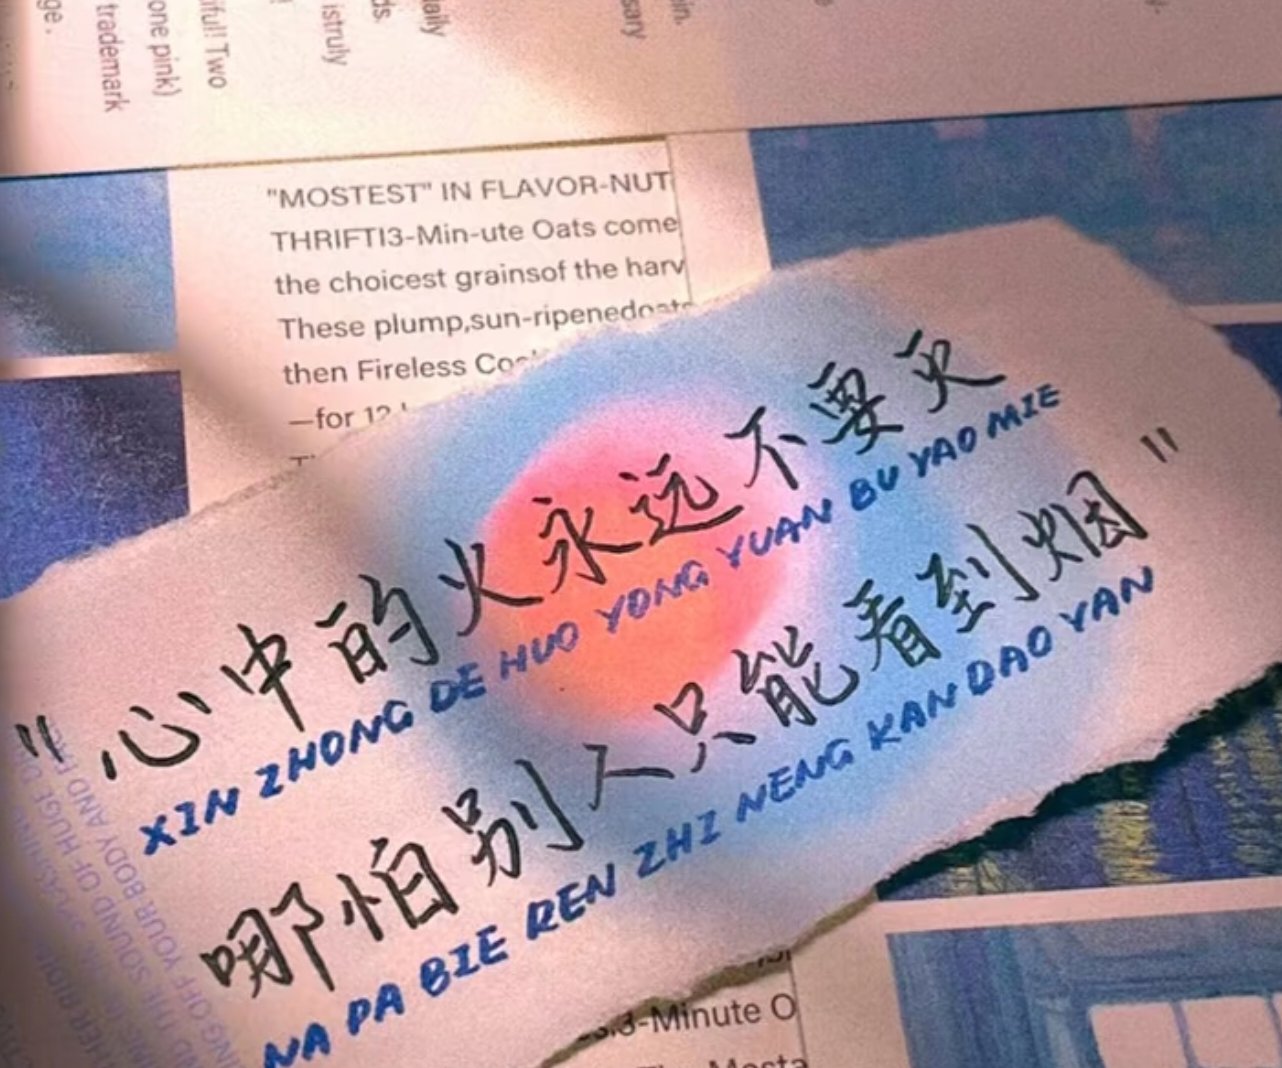 ge.
trademark
one pink)
iful!! Two
istruly
ds.
daily
sary
in.
"MOSTEST" IN FLAVOR-NUT
THRIFTI3-Min-ute Oats come
the choicest grainsof the harv
These plump,sun-ripenedoats
then Fireless Coo
—for 12
"心中的火永远不要灭
XIN ZHONG DE HUO YONG YUAN BU YAO MIE
哪怕别人只能看到烟"
NA PA BIE REN ZHI NENG KAN DAO YAN
YOUR BODY AND
THE SOUND OF HUGE
3-Minute O
Mosta